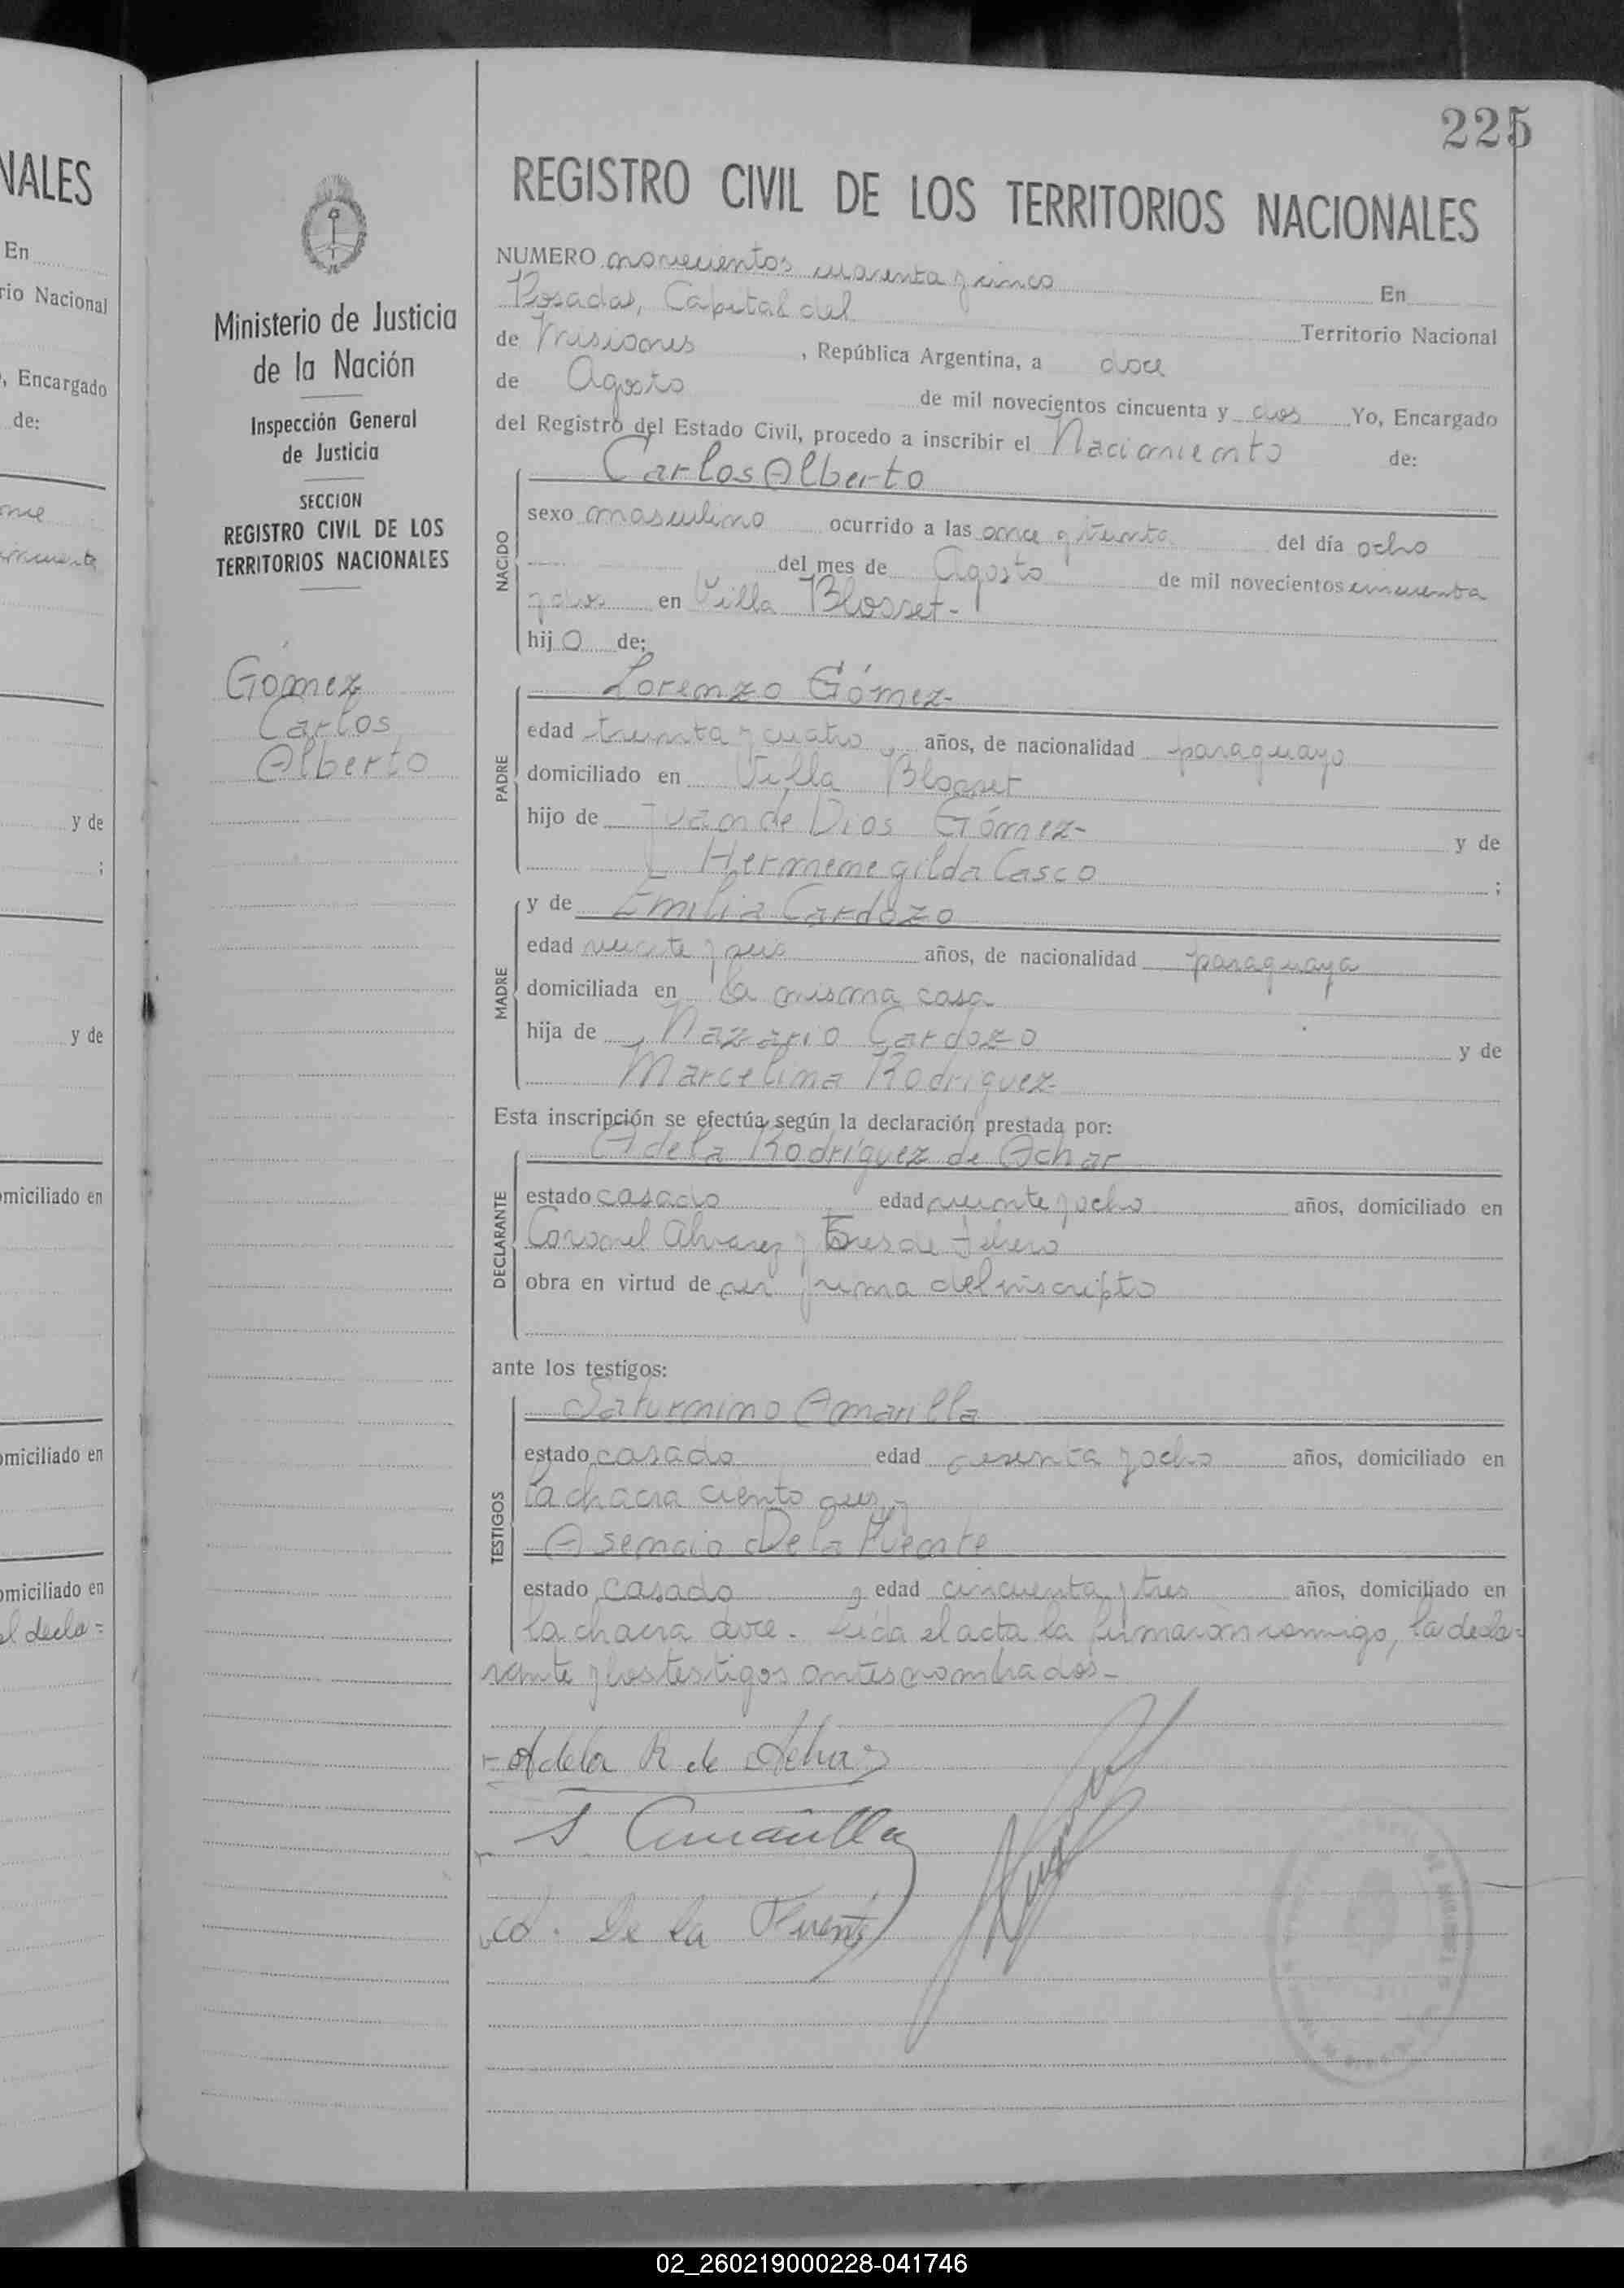 NALES
En
rio Nacional
, Encargado
de:
y de
;
y de
omiciliado en
omiciliado en
omiciliado en
el decla=
Ministerio de Justicia
de la Nación
Inspección General
de Justicia
SECCION
REGISTRO CIVIL DE LOS
TERRITORIOS NACIONALES
Gómez
Carlos
Alberto
225
REGISTRO CIVIL DE LOS TERRITORIOS NACIONALES
NUMERO novecientos cuarenta y cinco En
Posadas, Capital del Territorio Nacional
de Misiones , República Argentina, a doce
de Agosto de mil novecientos cincuenta y dos Yo, Encargado
del Registro del Estado Civil, procedo a inscribir el Nacimiento de:
Carlos Alberto
NACIDO
sexo masculino ocurrido a las once y treinta del día ocho
del mes de Agosto de mil novecientos cincuenta
y dos en Villa Blosset-
hijo de:
Lorenzo Gómez-
PADRE
edad treinta y cuatro, años, de nacionalidad paraguayo
domiciliado en Villa Blosset
hijo de Juan de Dios Gómez- y de
Hermenegilda Casco ;
MADRE
y de Emilia Cardozo
edad veinte y seis años, de nacionalidad paraguaya
domiciliada en la misma casa
hija de Nazario Cardozo y de
Marcelina Rodríguez-
Esta inscripción se efectúa según la declaración prestada por:
Adela Rodríguez de Achar
DECLARANTE
estado casado edad veinte y ocho años, domiciliado en
Coronel Alvarez y Tres de Febrero
obra en virtud de ser prima del inscripto
ante los testigos:
Saturnino Amarilla
TESTIGOS
estado casado edad sesenta y ocho años, domiciliado en
la chacra ciento
Asencio De la Fuente
estado casado, edad cincuenta y tres años, domiciliado en
la chacra doce. Leída el acta la firmaron conmigo, la decla-
rante y los testigos antes nombrados-
Adela R de Achar
S Amarilla
A. De la Fuente
02_260219000228-041746